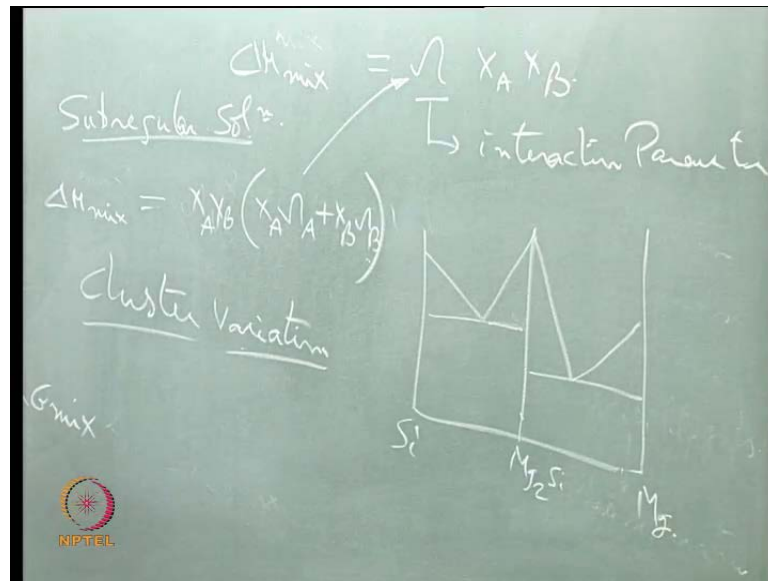 ΔH mix = Ω X_A X_B.
Subregular Sol^n.
↳ interaction Parameter
ΔH mix = X_A X_B (X_A Ω_A + X_B Ω_B)
Cluster Variation
G mix
Si
Mg2Si
Mg.
NPTEL